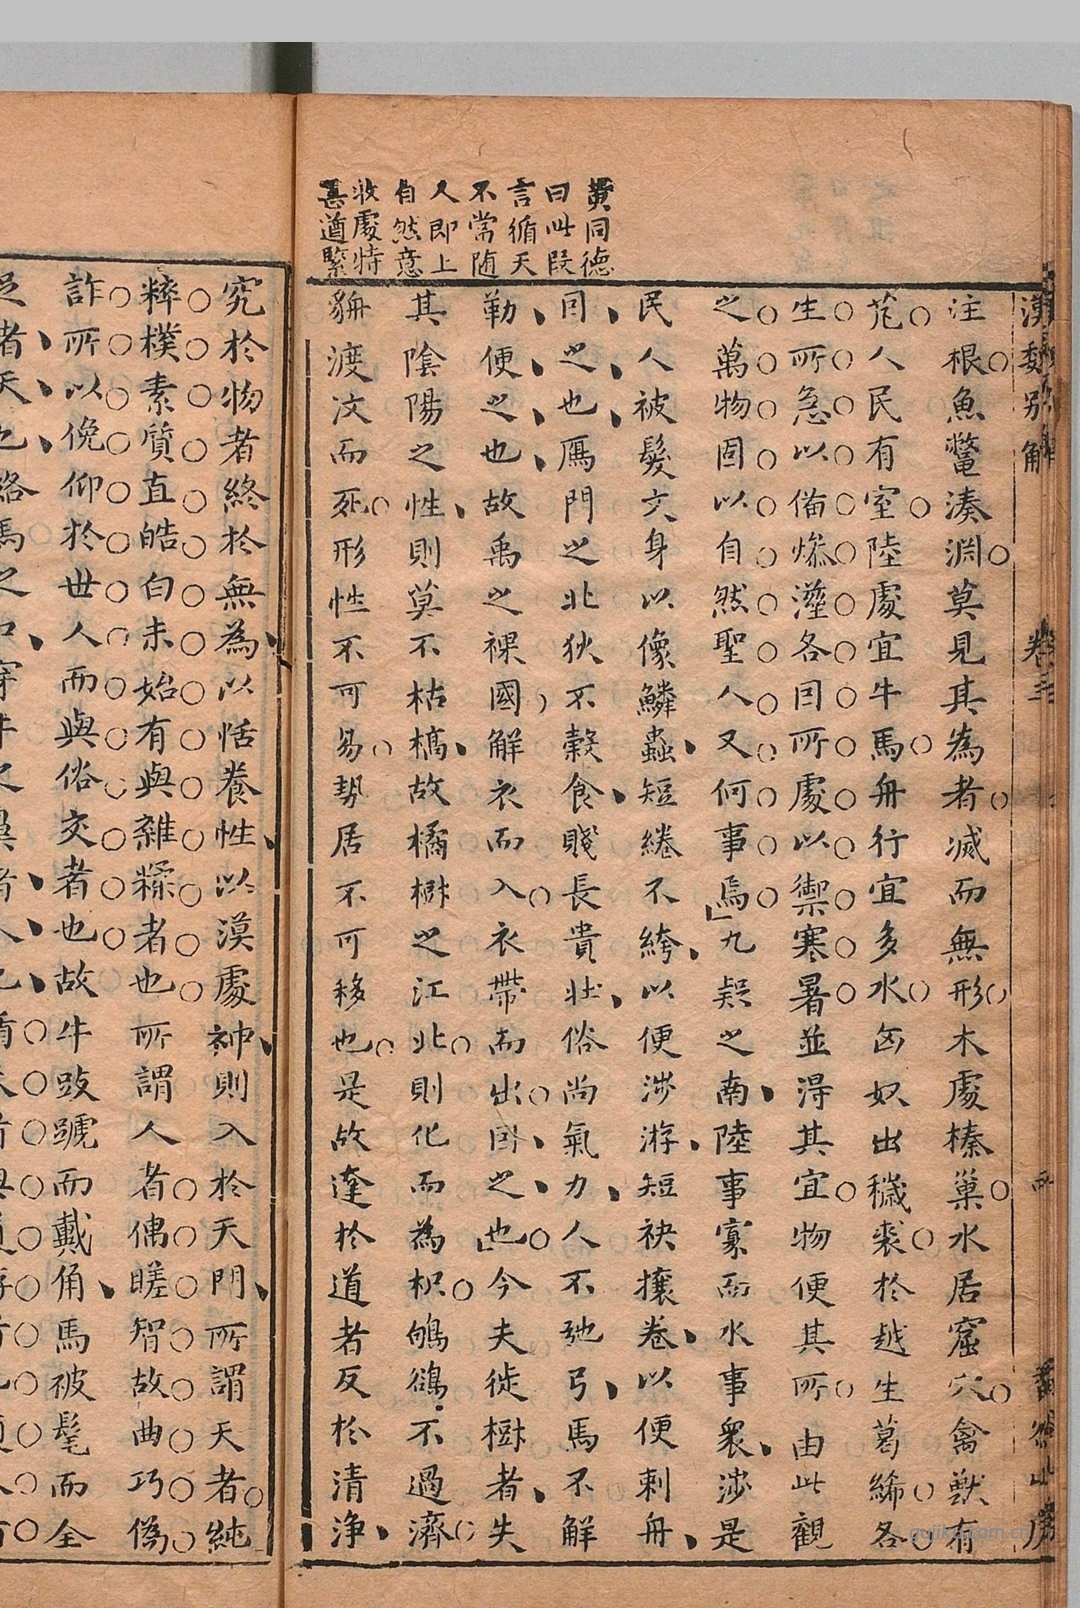 漢魏別解
卷三
注根魚鼈湊淵莫見其為者滅而無形木處榛巢水居窟穴禽獸有
芄人民有室陸處宜牛馬舟行宜多水匈奴出穢裘於越生葛絺各
生所急以備燥溼各因所處以禦寒暑並淂其宜物便其所由此觀
之萬物固以自然聖人又何事焉九疑之南陸事寡而水事衆涉是
民人被髮文身以像鱗蟲短綣不絝以便涉游短袂攘卷以便刺舟
因之也鴈門之北狄不穀食賤長貴壯俗尚氣力人不弛弓馬不解
勒便之也故禹之裸國解衣而入衣帶而出因之也今夫徙樹者失
其陰陽之性則莫不枯槁故橘樹之江北則化而為枳鴝鵒不過濟
貈渡汶而死形性不可易勢居不可移也是故逹於道者反於清浄
黄同德
曰此段
言循天
不常随
人即上
自然意
收處特
甚遒緊
究於物者終於無為以恬養性以漠處神則入於天門所謂天者純
粹樸素質直皓白未始有與雜糅者也所謂人者偶䁟智故曲巧偽
詐所以俛仰於世人而與俗交者也故牛歧蹏而戴角馬被髦而全